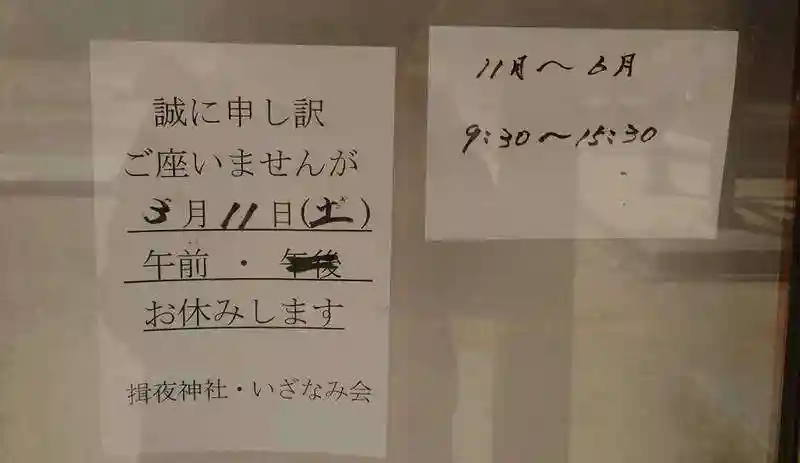 誠に申し訳
ご座いませんが
3月11日(土)
午前・午後
お休みします
揖夜神社・いざなみ会
11月～6月
9:30～15:30